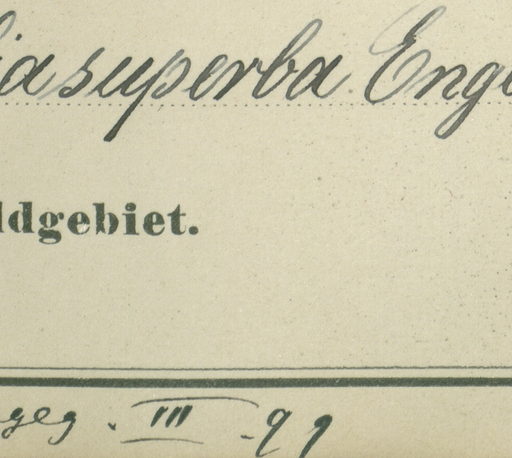 ia superba Eng
ldgebiet.
geg. III. 99